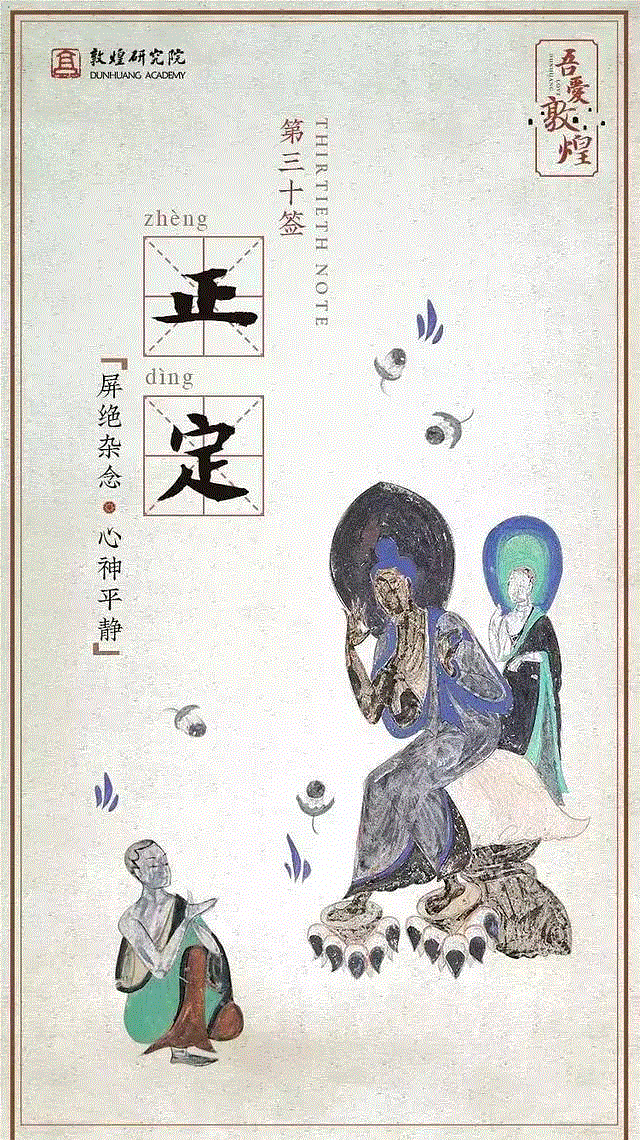 敦煌研究院
DUNHUANG ACADEMY
吾爱
敦煌
第三十签
THIRTIETH NOTE
zhèng
正
dìng
定
「屏绝杂念·心神平静」